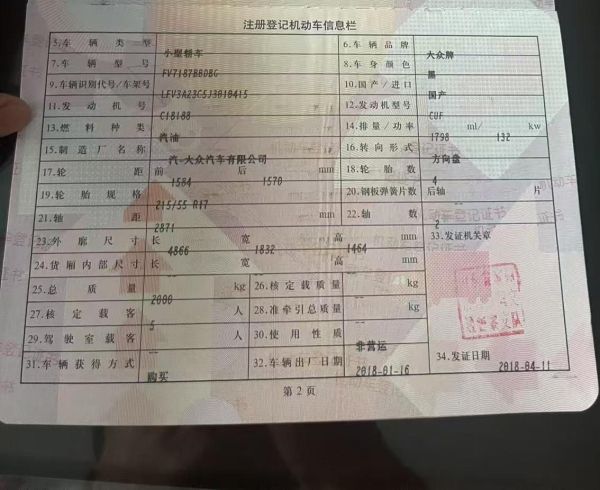 注册登记机动车信息栏
5.车辆类型 小型轿车 6.车辆品牌 大众牌
7.车辆型号 FV7187BBDBG 8.车身颜色 黑
9.车辆识别代号/车架号 LFV3A23C5J3010415 10.国产/进口 国产
11.发动机号 C18188 12.发动机型号 CUF
13.燃料种类 汽油 14.排量/功率 1798 ml/ 132 kw
15.制造厂名称 汽-大众汽车有限公司 16.转向形式 方向盘
17.轮距 前 1584 后 1570 mm 18.轮胎数 4
19.轮胎规格 215/55 R17 20.钢板弹簧片数 后轴 -- 片
21.轴距 2871 mm 22.轴数 2
23.外廓尺寸 长 4866 宽 1832 高 1464 mm 33.发证机关章
24.货厢内部尺寸 长 -- 宽 -- 高 -- mm
25.总质量 2000 kg 26.核定载质量 -- kg
27.核定载客 5 人 28.准牵引总质量 -- kg
29.驾驶室载客 -- 人 30.使用性质 非营运
31.车辆获得方式 购买 32.车辆出厂日期 2018-01-16 34.发证日期 2018-04-11
第2页